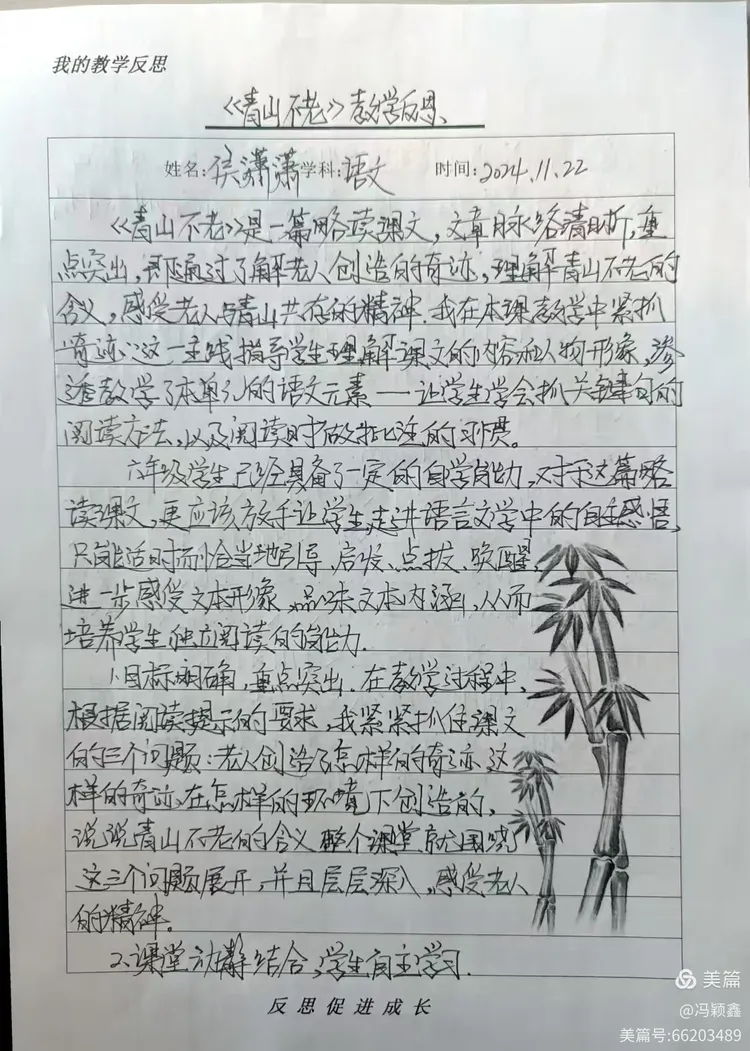 我的教学反思
《青山不老》教学反思
姓名:侯潇潇学科:语文 时间:2024.11.22
《青山不老》是一篇略读课文,文章脉络清晰,重
点突出,即通过了解老人创造的奇迹,理解青山不老的
含义,感受老人与青山共存的精神.我在本课教学中紧抓
“奇迹”这一主线指导学生理解课文的内容和人物形象,渗
透教学了本单元的语文元素——让学生学会抓关键句的
阅读方法,以及阅读时做批注的习惯。
六年级学生已经具备了一定的自学能力,对于这篇略
读课文,更应该放手让学生走进语言文学中的自主感悟,
只能适时而恰当地引导、启发、点拔、唤醒,
进一步感受文本形象,品味文本内涵,从而
培养学生独立阅读的能力.
1.目标明确,重点突出.在教学过程中,
根据阅读提示的要求,我紧紧抓住课文
的三个问题:老人创造了怎样的奇迹,这
样的奇迹在怎样的环境下创造的,
说说青山不老的含义.整个课堂就围绕
这三个问题展开,并且层层深入,感受老人
的精神。
2.课堂动静结合,学生自主学习.
反思促进成长
美篇
@冯颖鑫
美篇号:66203489